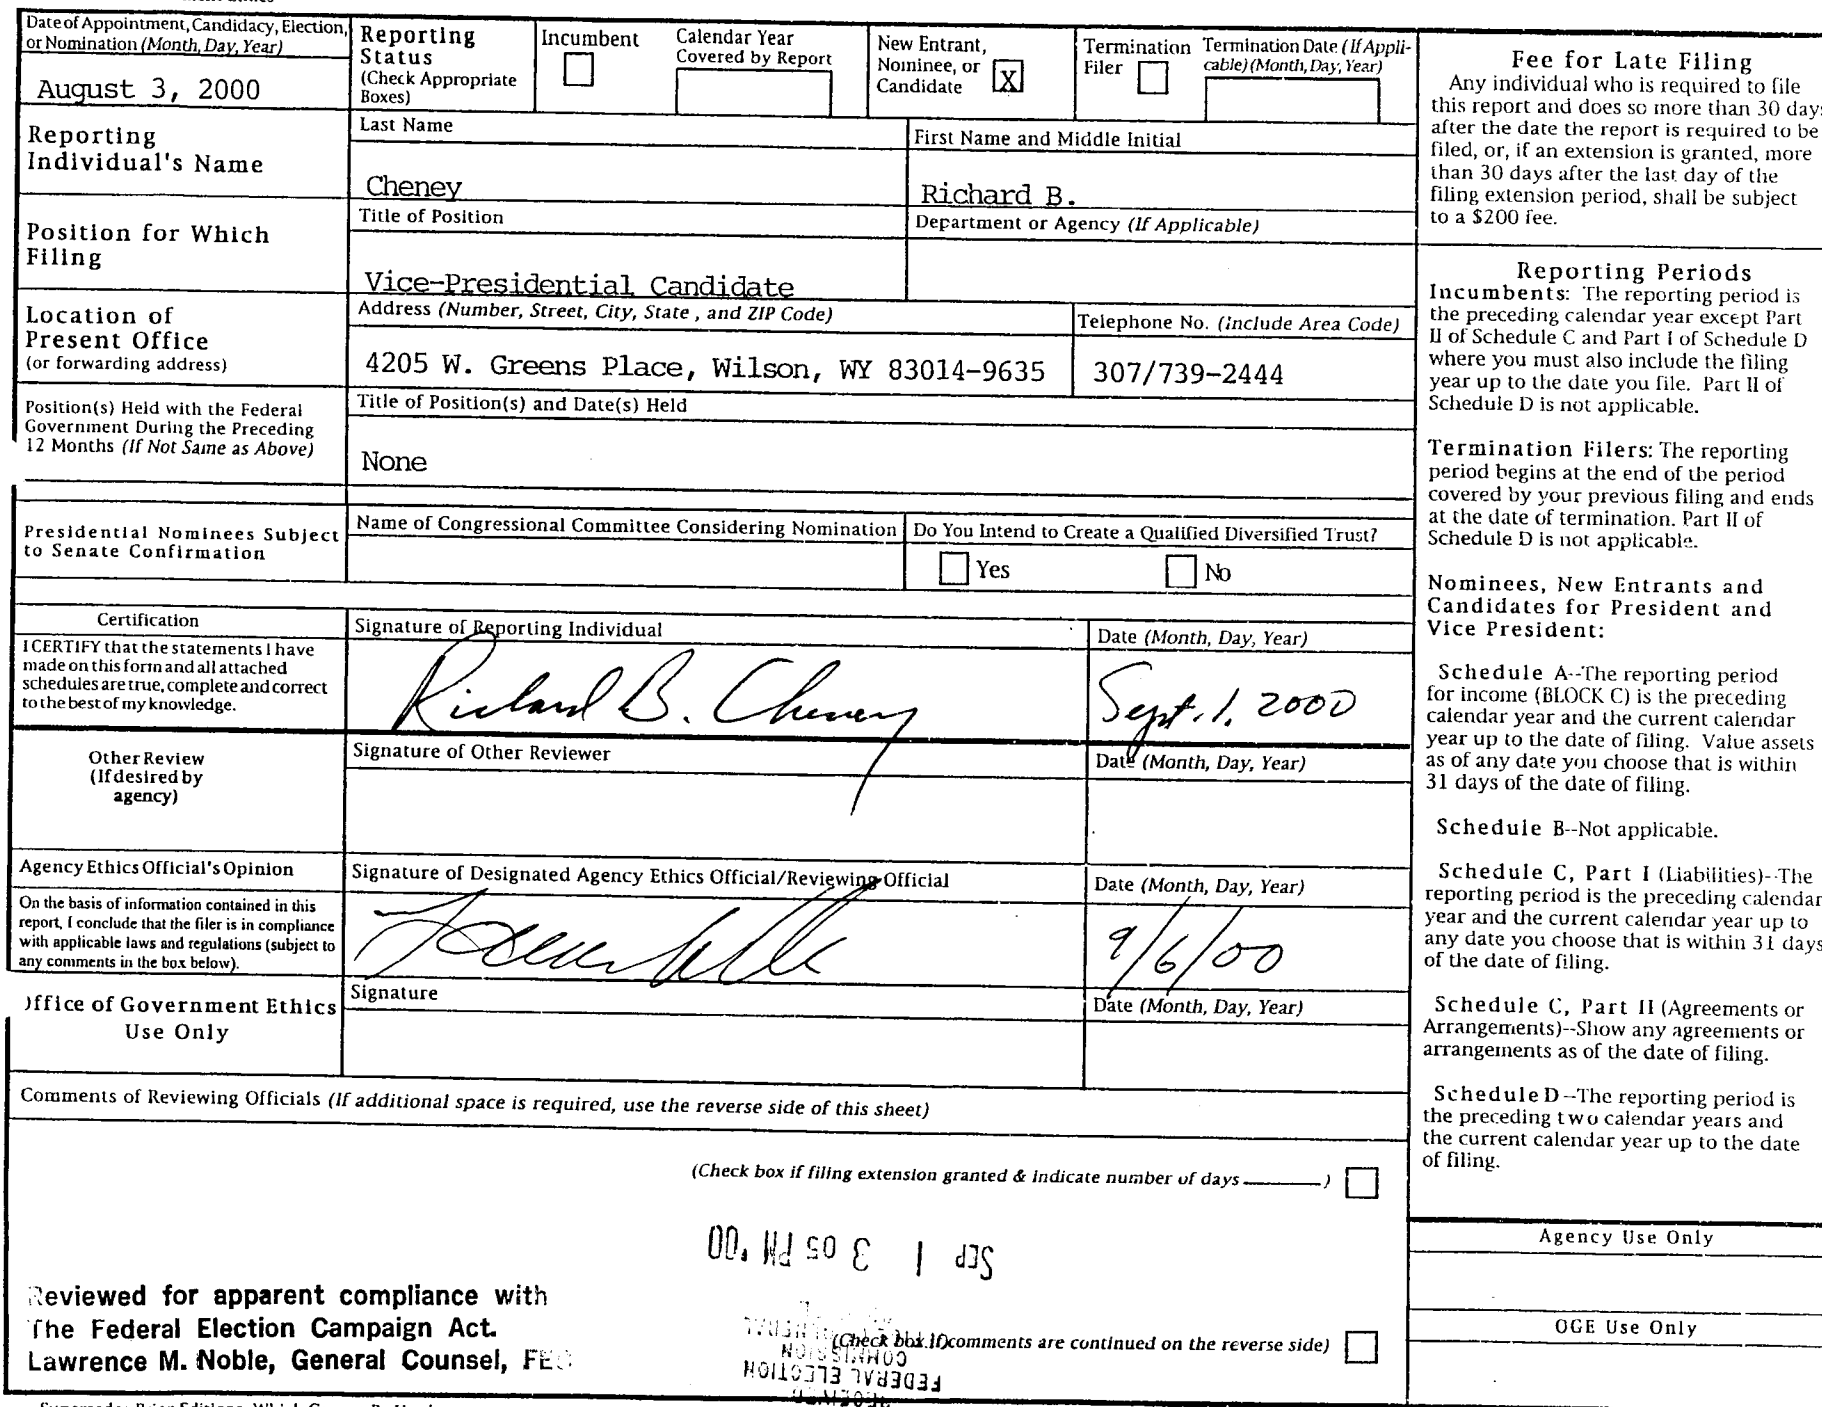 Date of Appointment, Candidacy, Election, or Nomination (Month, Day, Year)
August 3, 2000
Reporting Status
(Check Appropriate Boxes)
Incumbent
Calendar Year Covered by Report
New Entrant, Nominee, or Candidate X
Termination Filer
Termination Date (If Applicable) (Month, Day, Year)
Reporting Individual's Name
Last Name
Cheney
First Name and Middle Initial
Richard B.
Position for Which Filing
Title of Position
Vice-Presidential Candidate
Department or Agency (If Applicable)
Location of Present Office
(or forwarding address)
Address (Number, Street, City, State , and ZIP Code)
4205 W. Greens Place, Wilson, WY 83014-9635
Telephone No. (Include Area Code)
307/739-2444
Position(s) Held with the Federal
Government During the Preceding
12 Months (If Not Same as Above)
Title of Position(s) and Date(s) Held
None
Presidential Nominees Subject
to Senate Confirmation
Name of Congressional Committee Considering Nomination
Do You Intend to Create a Qualified Diversified Trust?
Yes
No
Certification
I CERTIFY that the statements I have
made on this form and all attached
schedules are true, complete and correct
to the best of my knowledge.
Signature of Reporting Individual
Richard B. Cheney
Date (Month, Day, Year)
Sept. 1, 2000
Other Review
(If desired by
agency)
Signature of Other Reviewer
Date (Month, Day, Year)
Agency Ethics Official's Opinion
On the basis of information contained in this
report, I conclude that the filer is in compliance
with applicable laws and regulations (subject to
any comments in the box below).
Signature of Designated Agency Ethics Official/Reviewing Official
Date (Month, Day, Year)
9/6/00
Office of Government Ethics
Use Only
Signature
Date (Month, Day, Year)
Comments of Reviewing Officials (If additional space is required, use the reverse side of this sheet)
(Check box if filing extension granted & indicate number of days ______)
SEP 1 3 05 PM '00
Reviewed for apparent compliance with
The Federal Election Campaign Act.
Lawrence M. Noble, General Counsel, FEC
(Check box if comments are continued on the reverse side)
FEDERAL ELECTION
COMMISSION
Fee for Late Filing
Any individual who is required to file
this report and does so more than 30 days
after the date the report is required to be
filed, or, if an extension is granted, more
than 30 days after the last day of the
filing extension period, shall be subject
to a $200 fee.
Reporting Periods
Incumbents: The reporting period is
the preceding calendar year except Part
II of Schedule C and Part I of Schedule D
where you must also include the filing
year up to the date you file. Part II of
Schedule D is not applicable.
Termination Filers: The reporting
period begins at the end of the period
covered by your previous filing and ends
at the date of termination. Part II of
Schedule D is not applicable.
Nominees, New Entrants and
Candidates for President and
Vice President:
Schedule A--The reporting period
for income (BLOCK C) is the preceding
calendar year and the current calendar
year up to the date of filing. Value assets
as of any date you choose that is within
31 days of the date of filing.
Schedule B--Not applicable.
Schedule C, Part I (Liabilities)--The
reporting period is the preceding calendar
year and the current calendar year up to
any date you choose that is within 31 days
of the date of filing.
Schedule C, Part II (Agreements or
Arrangements)--Show any agreements or
arrangements as of the date of filing.
Schedule D--The reporting period is
the preceding two calendar years and
the current calendar year up to the date
of filing.
Agency Use Only
OGE Use Only